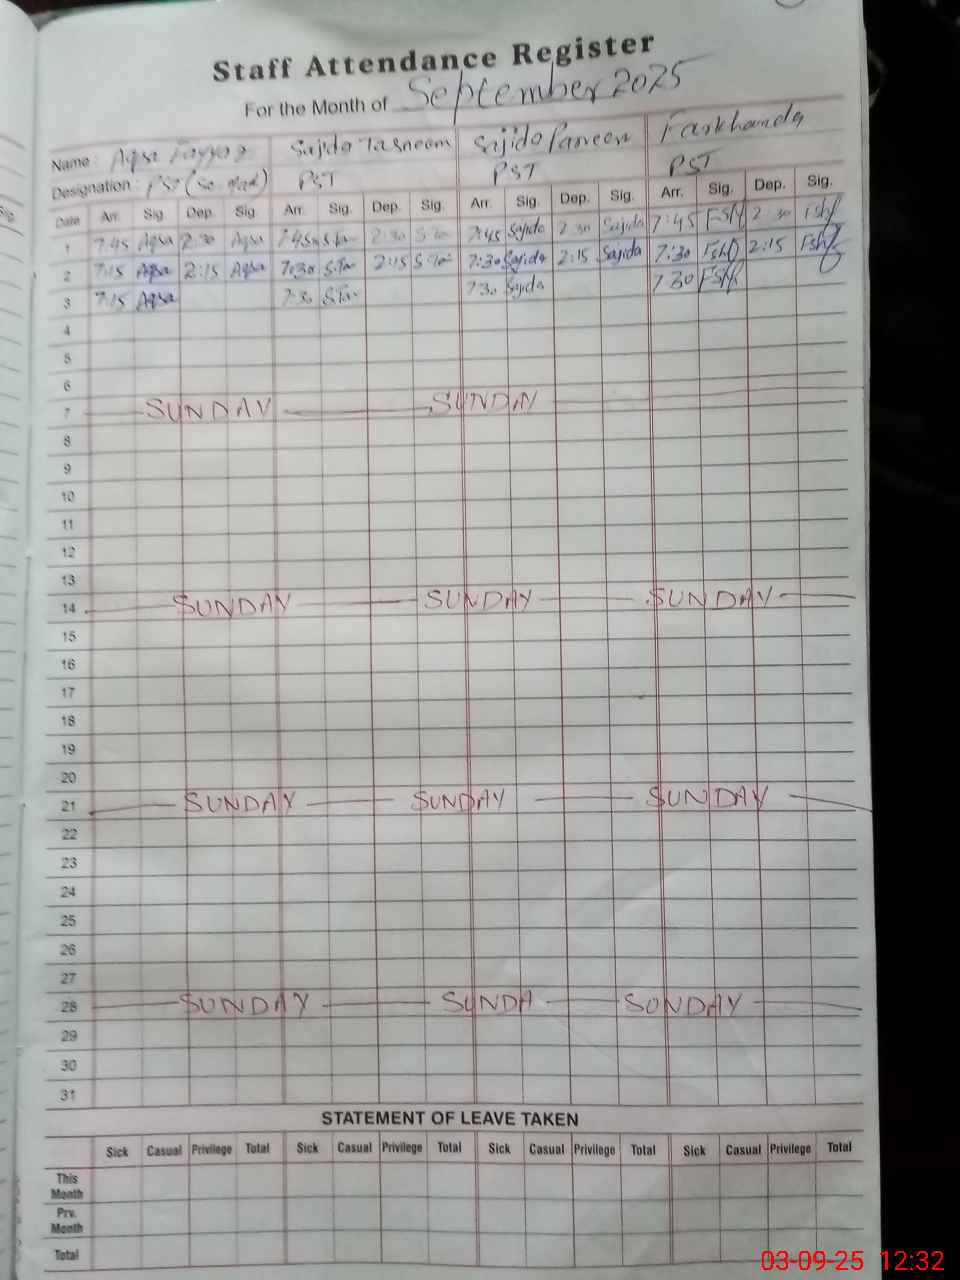 Staff Attendance Register
For the Month of September 2025
Name : Aqsa Fayyaz Sajida Tasneem Sajida Parveen Farkhanda
Designation : PST PST PST PST
Date Arr. Sig. Dep. Sig. Arr. Sig. Dep. Sig. Arr. Sig. Dep. Sig. Arr. Sig. Dep. Sig.
1 7:45 Aqsa 2:30 Aqsa 7:45 S.Tas 2:30 S.Tas 7:45 Sajida 2:30 Sajida 7:45 2:30
2 7:15 Aqsa 2:15 Aqsa 7:30 S.Tas 2:15 S.Tas 7:30 Sajida 2:15 Sajida 7:30 2:15
3 7:15 Aqsa 7:30 S.Tas 7:30 Sajida 7:30
4
5
6
7 SUNDAY SUNDAY
8
9
10
11
12
13
14 SUNDAY SUNDAY SUNDAY
15
16
17
18
19
20
21 SUNDAY SUNDAY SUNDAY
22
23
24
25
26
27
28 SUNDAY SUNDA SUNDAY
29
30
31
STATEMENT OF LEAVE TAKEN
Sick Casual Privilege Total Sick Casual Privilege Total Sick Casual Privilege Total Sick Casual Privilege Total
This Month
Prv. Month
Total
03-09-25 12:32